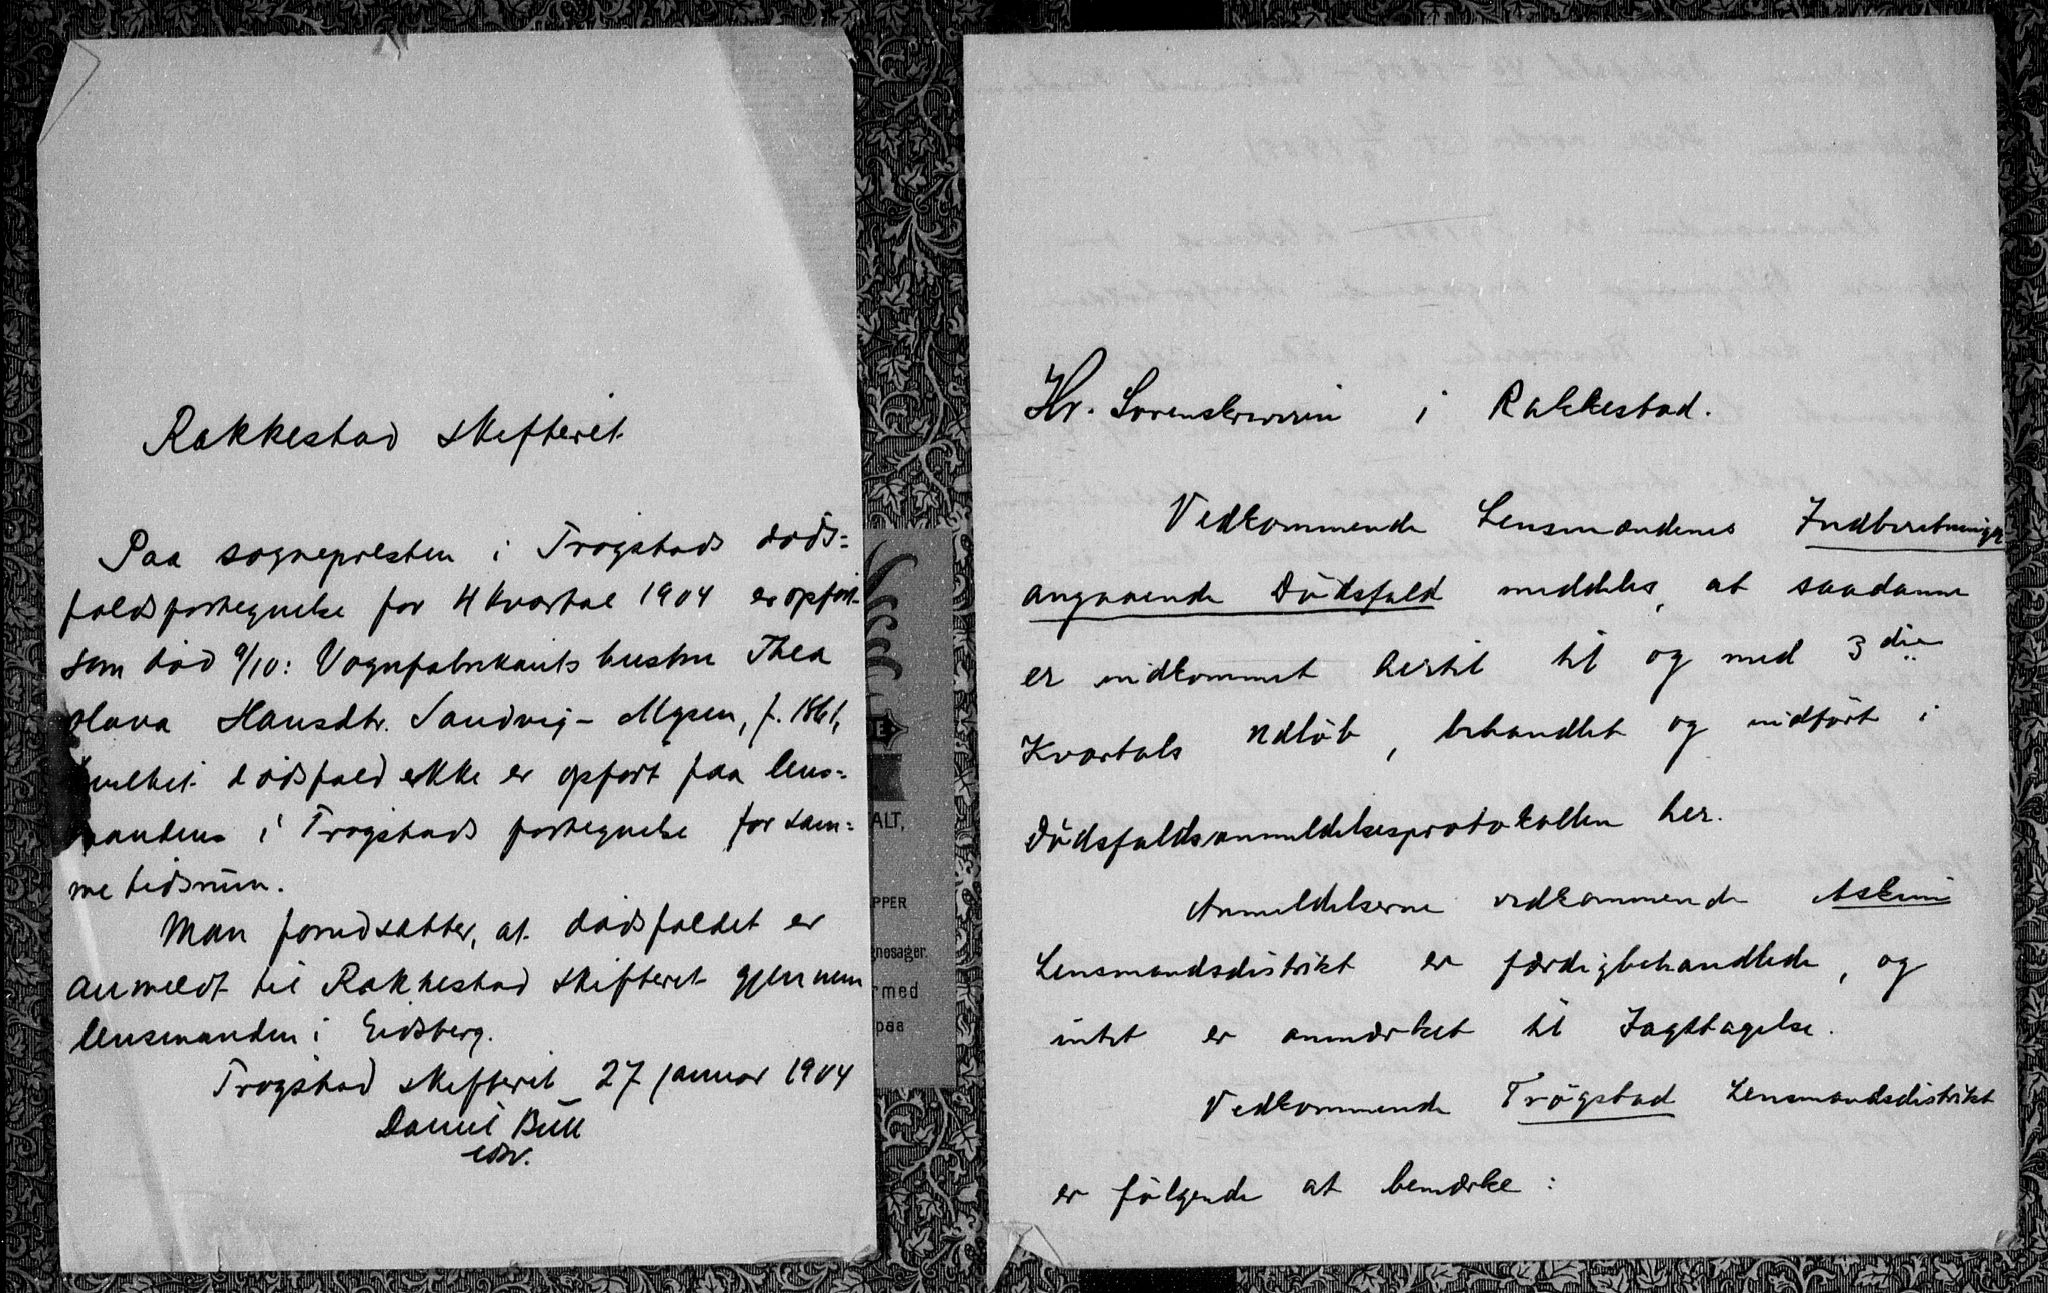 Rakkestad skifteret
Paa sognepresten i Trøgstads døds-
faldsfortegnelse for 4 kvartal 1904 er opført
som død 9/10: Vognfabrikants hustru Thea
Hansdtr. Sandvig - Mysen, f. 1861,
hvilket dødsfald ikke er opført paa lens-
mandens i Trøgstads fortegnelse for sam-
me tidsrum.
Man forudsætter, at dødsfaldet er
anmeldt til Rakkestad skifteret gjennem
lensmanden i Eidsberg.
Trøgstad skifteret 27 januar 1904
Daniel Bull
ALT,
PPER
gnesager.
r med
paa
Hr. Sorenskriveren i Rakkestad.
Vedkommende Lensmændenes Indberetninger
angaaende Dødsfald meddeles, at saadanne
er indkommet hertil til og med 3die
Kvartals Udløb, behandlet og indført i
Dødsfaldsanmeldelsesprotokollen her.
Anmeldelserne vedkommende Askim
Lensmandsdistrikt er færdigbehandlede, og
intet er anmærket til Iagttagelse.
Vedkommende Trøgstad Lensmandsdistrikt
er følgende at bemærke: